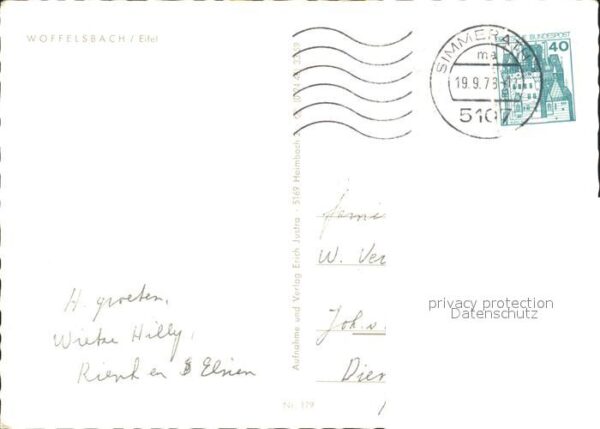 WOFFELSBACH / Eifel
SIMMERATH
ma
19.9.78-17
5107
DEUTSCHE BUNDESPOST
40
Aufnahme und Verlag Erich Justra · 5169 Heimbach
Nr. 179
H. groeten,
Wietse Hilly,
Rienk en Elsien
Fami
W. Ver
Joh. v.
Dier
privacy protection
Datenschutz